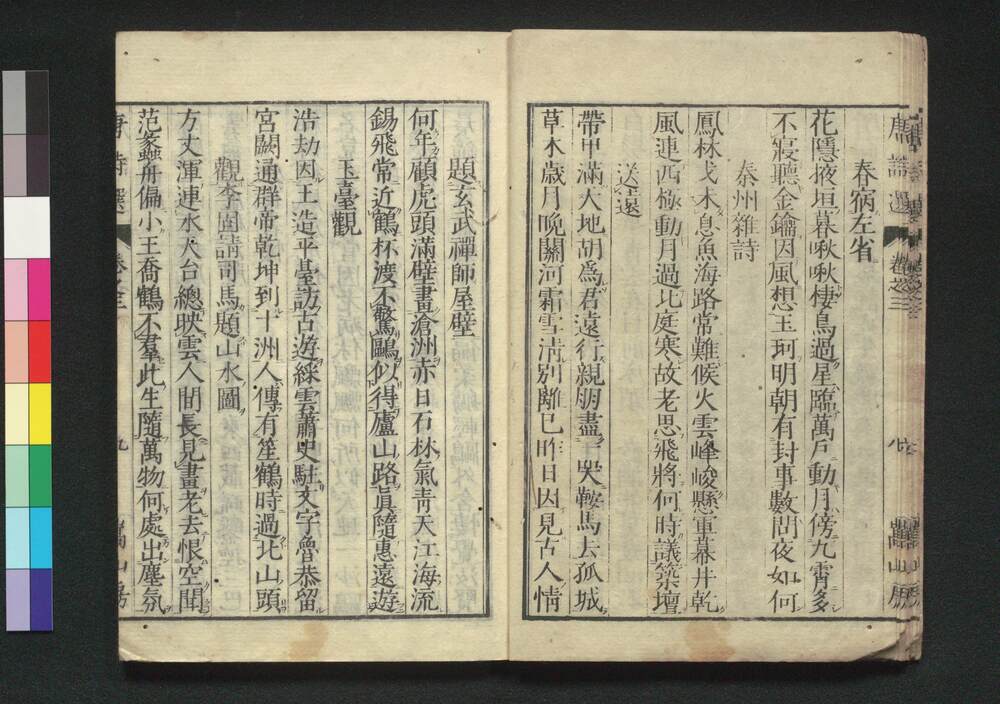 春宿左省
花隱掖垣暮啾啾棲鳥過星臨萬戶動月傍九霄多
不寢聽金鑰因風想玉珂明朝有封事數問夜如何
秦州雜詩
鳳林戈未息魚海路常難候火雲峰峻懸軍幕井乾
風連西極動月過北庭寒故老思飛將何時議築壇
送遠
帶甲滿天地胡爲君遠行親朋盡一哭鞍馬去孤城
草木歲月晚關河霜雪清別離已昨日因見古人情
唐詩選
卷之三
八
嵩山房
題玄武禪師屋壁
何年顧虎頭滿壁畫滄洲赤日石林氣靑天江海流
錫飛常近鶴杯渡不驚鷗似得廬山路眞隨惠遠遊
玉臺觀
浩劫因王造平臺訪古遊綵雲蕭史駐文字魯恭留
宮闕通群帝乾坤到十洲人傳有笙鶴時過北山頭
觀李固請司馬題山水圖
方丈渾連水天台總映雲人間長見畫老去恨空聞
范蠡舟偏小王喬鶴不羣此生隨萬物何處出塵氛
唐詩選
卷之三
九
嵩山房